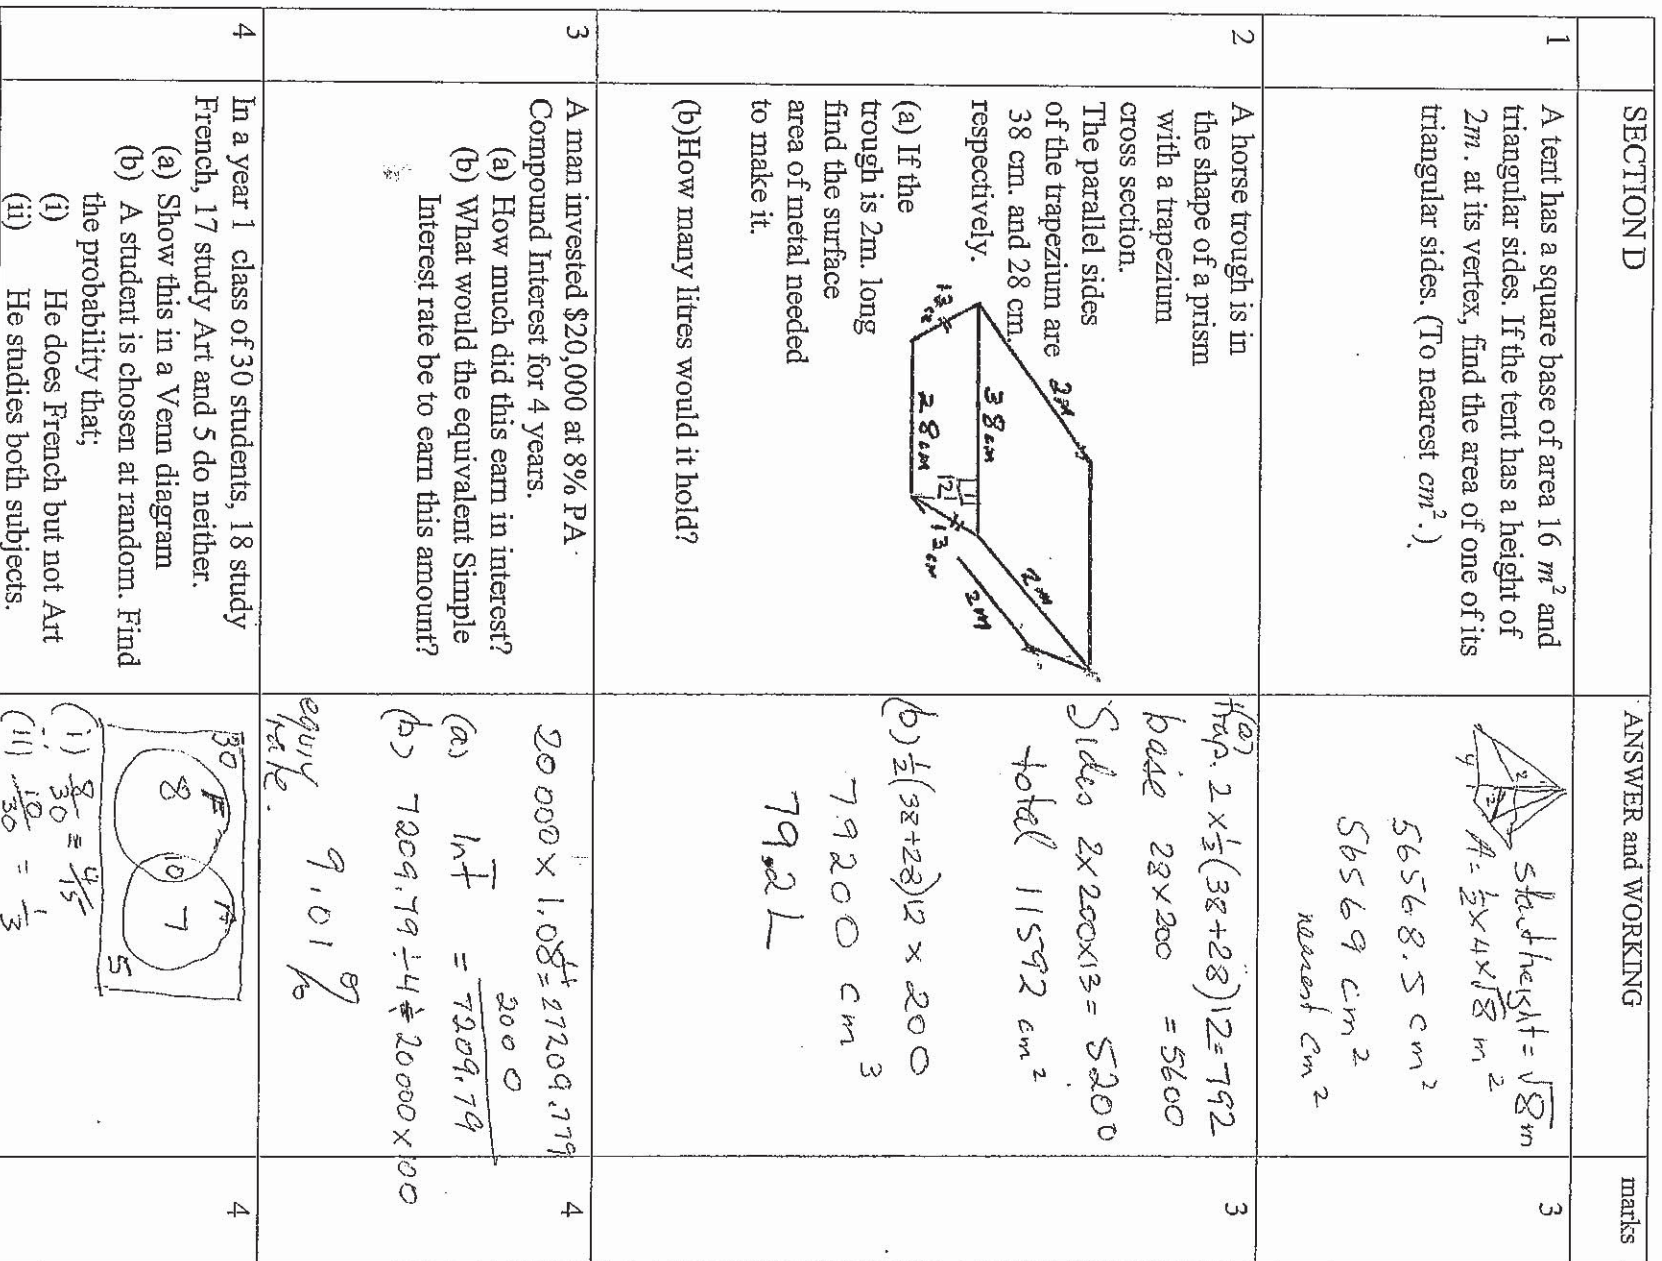 SECTION D
ANSWER and WORKING
marks
1
A tent has a square base of area 16 m² and
triangular sides. If the tent has a height of
2m. at its vertex, find the area of one of its
triangular sides. (To nearest cm².)
2
2
4
Slant height = √8 m
A = ½ × 4 × √8 m²
56568.5 cm²
56569 cm²
nearest cm²
3
2
A horse trough is in
the shape of a prism
with a trapezium
cross section.
The parallel sides
of the trapezium are
38 cm. and 28 cm.
respectively.
(a) If the
trough is 2m. long
find the surface
area of metal needed
to make it.
(b)How many litres would it hold?
2m
38cm
13cm
28cm
12
13cm
2m
2m
(a)
trap. 2 × ½(38+28)12=792
base 28×200 =5600
Sides 2×200×13= 5200
total 11592 cm²
(b) ½(38+28)12 × 200
79200 cm³
79.2 L
3
3
A man invested $20,000 at 8% PA
Compound Interest for 4 years.
(a) How much did this earn in interest?
(b) What would the equivalent Simple
Interest rate be to earn this amount?
20 000 × 1.08⁴=27209.779
2000 0
(a) InT = 7209.79
(b) 7209.79 ÷4 ÷ 20000×100
9.01 %
equiv.
rate.
4
4
In a year 1 class of 30 students, 18 study
French, 17 study Art and 5 do neither.
(a) Show this in a Venn diagram
(b) A student is chosen at random. Find
the probability that;
(i) He does French but not Art
(ii) He studies both subjects.
30
F
A
8
10
7
5
(i) 8/30 = 4/15
(ii) 10/30 = 1/3
4